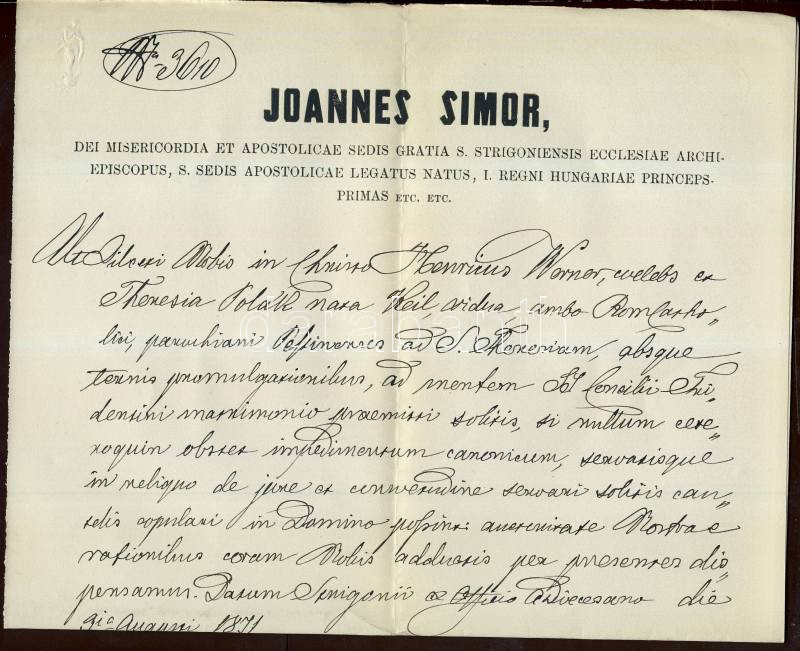 Nro 3610
JOANNES SIMOR,
DEI MISERICORDIA ET APOSTOLICAE SEDIS GRATIA S. STRIGONIENSIS ECCLESIAE ARCHI-
EPISCOPUS, S. SEDIS APOSTOLICAE LEGATUS NATUS, I. REGNI HUNGARIAE PRINCEPS-
PRIMAS ETC. ETC.
Ut Dilecti Nobis in Christo Henricus Werner, coelebs et
Theresia Polák nata Keil, vidua, ambo Rom Catho„
lici, parochiani Pestinenses ad S. Theresiam, absque
ternis promulgationibus, ad mentem Sti Concilii Tri„
dentini matrimonio praemitti solitis, si nullum cete„
roquin obstet impedimentum canonicum, servatisque
in reliquo de jure et consvetudine servari solitis cau„
telis copulari in Domino possint: auctoritate Nostra e
rationibus coram Nobis adductis per presentes dis„
pensamus. Datum Strigonii ex Officio Dioecesano die
Augusti 1871